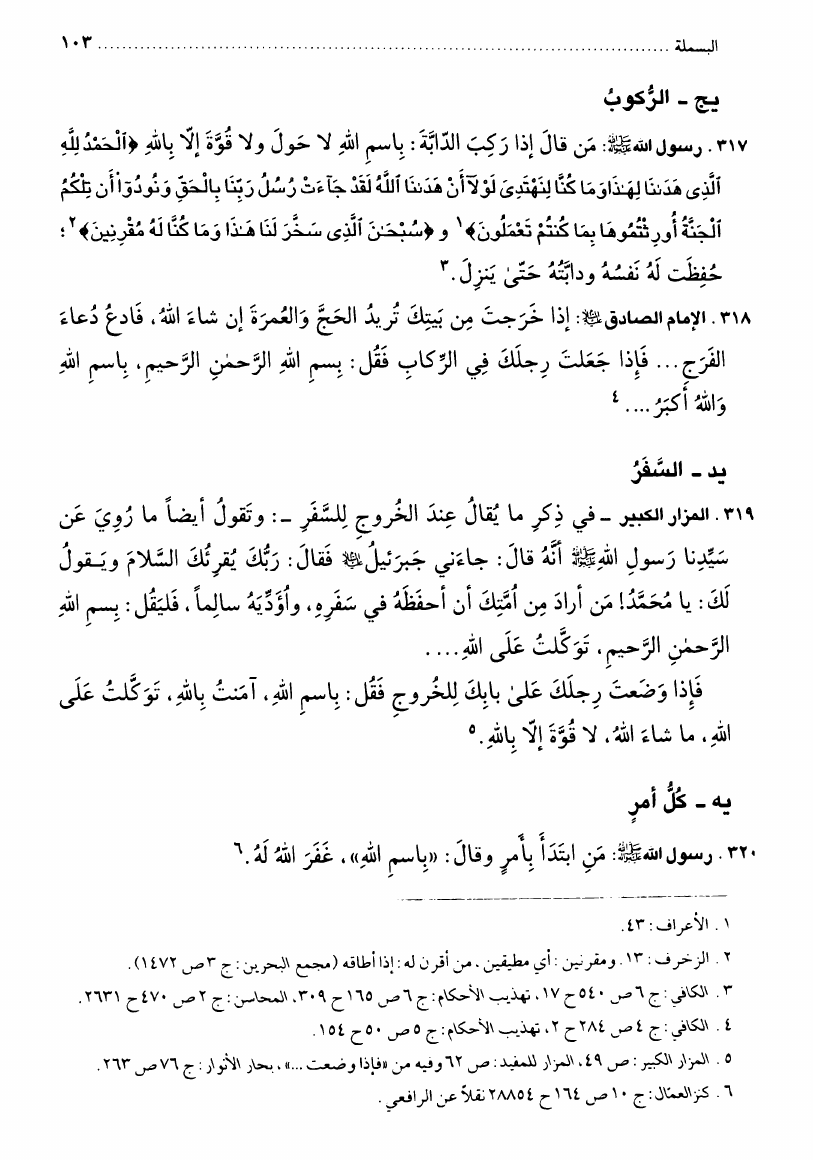 البسملة ........................................................................................ ١٠٣
يج - الرُّكوبُ
٣١٧ . رسول الله ﷺ: مَن قالَ إذا رَكِبَ الدّابَّةَ: بِاسمِ اللهِ لا حَولَ ولا قُوَّةَ إلّا بِاللهِ ﴿ٱلْحَمْدُ لِلَّهِ
ٱلَّذِى هَدَىٰنَا لِهَـٰذَا وَمَا كُنَّا لِنَهْتَدِىَ لَوْلَآ أَنْ هَدَىٰنَا ٱللَّهُ لَقَدْ جَآءَتْ رُسُلُ رَبِّنَا بِالْحَقِّ وَنُودُوٓا۟ أَن تِلْكُمُ
ٱلْجَنَّةُ أُورِثْتُمُوهَا بِمَا كُنتُمْ تَعْمَلُونَ﴾١ و ﴿سُبْحَـٰنَ ٱلَّذِى سَخَّرَ لَنَا هَـٰذَا وَمَا كُنَّا لَهُ مُقْرِنِينَ﴾٢؛
حُفِظَت لَهُ نَفسُهُ ودابَّتُهُ حَتّىٰ يَنزِلَ.٣
٣١٨ . الإمام الصادق ﷷ: إذا خَرَجتَ مِن بَيتِكَ تُريدُ الحَجَّ وَالعُمرَةَ إن شاءَ اللهُ، فَادعُ دُعاءَ
الفَرَجِ... فَإِذا جَعَلتَ رِجلَكَ فِي الرِّكابِ فَقُل: بِسمِ اللهِ الرَّحمٰنِ الرَّحيمِ، بِاسمِ اللهِ
وَاللهُ أكبَرُ ....٤
يد - السَّفَرُ
٣١٩ . المزار الكبير - في ذِكرِ ما يُقالُ عِندَ الخُروجِ لِلسَّفَرِ -: وتَقولُ أيضاً ما رُوِيَ عَن
سَيِّدِنا رَسولِ اللهِ ﷺ أنَّهُ قالَ: جاءَني جَبرَئيلُ ﷷ فَقالَ: رَبُّكَ يُقرِئُكَ السَّلامَ ويَـقولُ
لَكَ: يا مُحَمَّدُ! مَن أرادَ مِن اُمَّتِكَ أن أحفَظَهُ في سَفَرِهِ، واُؤَدِّيَهُ سالِماً، فَليَقُل: بِسمِ اللهِ
الرَّحمٰنِ الرَّحيمِ، تَوَكَّلتُ عَلَى اللهِ....
فَإِذا وَضَعتَ رِجلَكَ عَلىٰ بابِكَ لِلخُروجِ فَقُل: بِاسمِ اللهِ، آمَنتُ بِاللهِ، تَوَكَّلتُ عَلَى
اللهِ، ما شاءَ اللهُ، لا قُوَّةَ إلّا بِاللهِ.٥
يه - كُلُّ أمرٍ
٣٢٠ . رسول الله ﷺ: مَنِ ابتَدَأَ بِأَمرٍ وقالَ: «بِاسمِ اللهِ»، غَفَرَ اللهُ لَهُ.٦
١ . الأعراف: ٤٣.
٢ . الزخرف: ١٣. ومقرنين: أي مطيقين، من أقرن له: إذا أطاقه (مجمع البحرين: ج ٣ ص ١٤٧٢).
٣ . الكافي: ج ٦ ص ٥٤٠ ح ١٧، تهذيب الأحكام: ج ٦ ص ١٦٥ ح ٣٠٩، المحاسن: ج ٢ ص ٤٧٠ ح ٢٦٣١.
٤ . الكافي: ج ٤ ص ٢٨٤ ح ٢، تهذيب الأحكام: ج ٥ ص ٥٠ ح ١٥٤.
٥ . المزار الكبير: ص ٤٩، المزار للمفيد: ص ٦٢ وفيه من «فإذا وضعت ...»، بحار الأنوار: ج ٧٦ ص ٢٦٣.
٦ . كنز العمّال: ج ١٠ ص ١٦٤ ح ٢٨٨٥٤ نقلاً عن الرافعي.